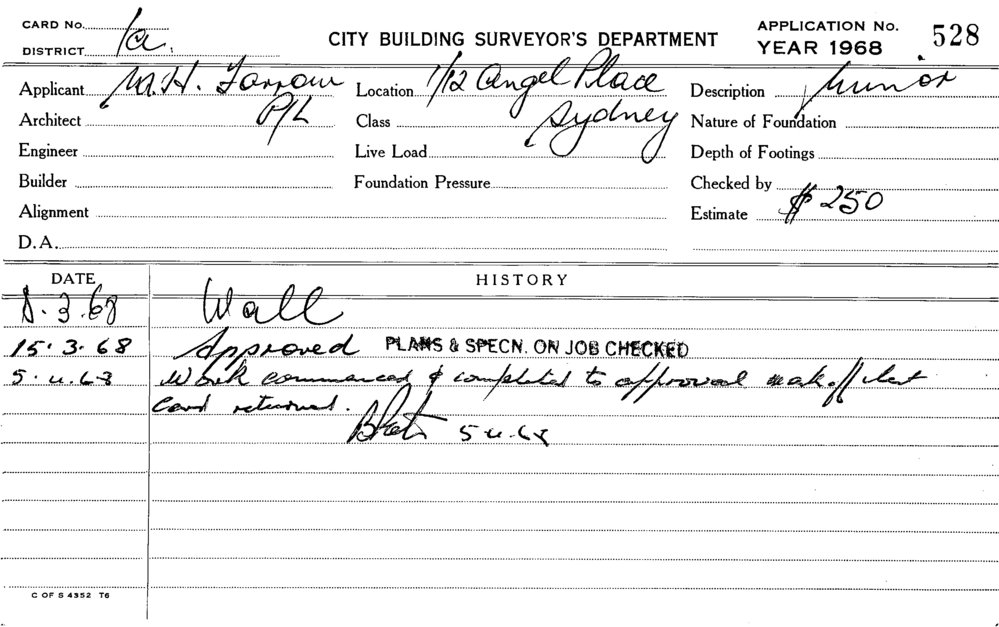 CARD No. 1a.
DISTRICT
CITY BUILDING SURVEYOR'S DEPARTMENT
APPLICATION No. 528
YEAR 1968
Applicant M.H. Farrow P/L
Architect
Engineer
Builder
Alignment
D.A.
Location 1/12 Angel Place Sydney
Class
Live Load
Foundation Pressure
Description Minor
Nature of Foundation
Depth of Footings
Checked by
Estimate $ 250
DATE HISTORY
8.3.68 Wall
15.3.68 Approved PLANS & SPECN. ON JOB CHECKED
5.4.68 Work commenced & completed to approval
Card returned.
5.4.68
C OF S 4352 T6